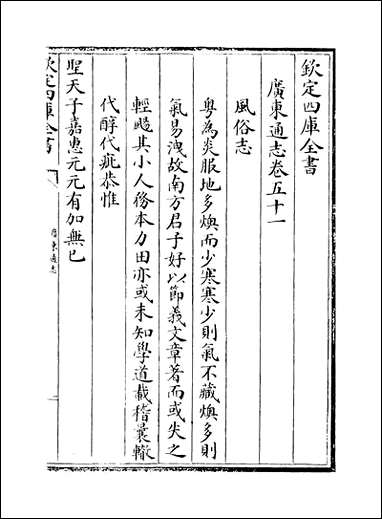 欽定四庫全書
廣東通志卷五十一
風俗志
粵為炎服地多燠而少寒寒少則氣不藏燠多則
氣易洩故南方君子好以節義文章著而或失之
輕颺其小人務本力田亦或未知學道載稽曩轍
代醇代疵恭惟
聖天子嘉惠元元有加無已
欽定四庫全書
廣東通志